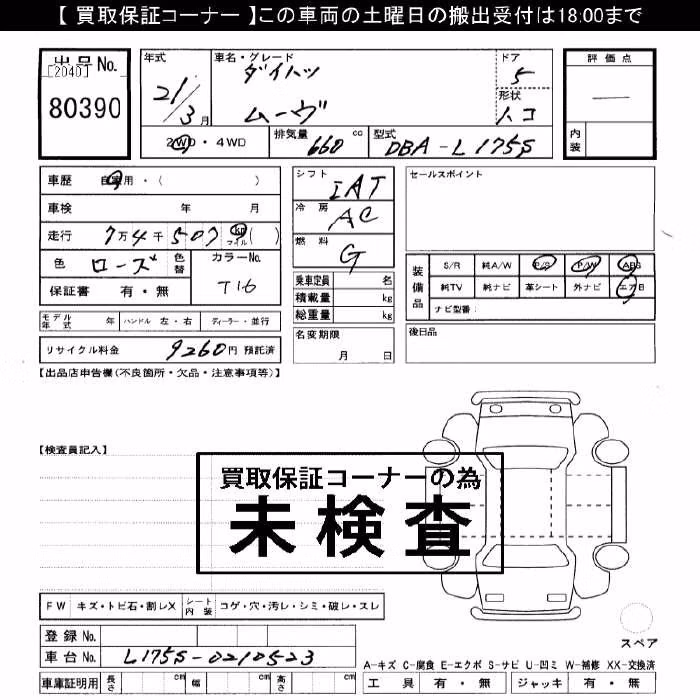 【 買取保証コーナー 】この車両の土曜日の搬出受付は18:00まで
出品No.
[2040]
80390
年式
21/3月
車名・グレード
ダイハツ
ムーヴ
ドア
5
形状
ハコ
2WD・4WD
排気量 660 cc
型式 DBA-L175S
評価点
—
内装
車歴 自家用・( )
車検 年 月
走行 7万4千507 km マイル( )
色 ローズ 色替
カラーNo.
T16
保証書 有・無
シフト IAT
冷房 AC
燃料 G
乗車定員 名
積載量 kg
総重量 kg
セールスポイント
装備品
S/R 純A/W P/S P/W ABS
純TV 純ナビ 革シート 外ナビ エアB
ナビ型番:
モデル年式 年 ハンドル 左・右 ディーラー・並行
名変期限
月 日
後日品
リサイクル料金 9260円 預託済
【出品店申告欄(不良箇所・欠品・注意事項等)】
【検査員記入】
買取保証コーナーの為
未検査
FW キズ・トビ石・割レX シート内装 コゲ・穴・汚レ・シミ・破レ・スレ
登録No.
車台No. L175S-0210523
車庫証明用 長さ cm 幅 cm 高さ cm
スペア
A-キズ C-腐食 E-エクボ S-サビ U-凹ミ W-補修 XX-交換済
工具 有・無 ジャッキ 有・無